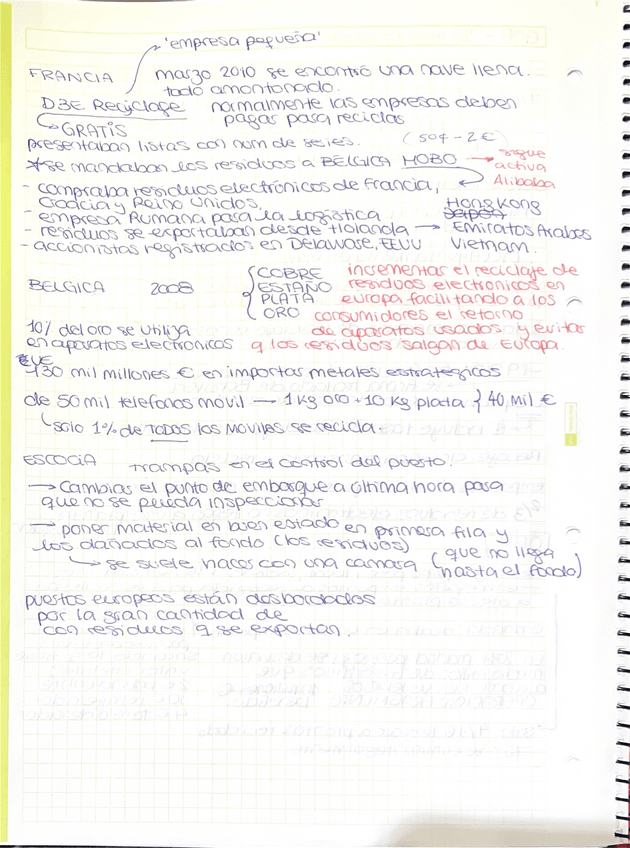 'empresa pequeña'
FRANCIA marzo 2010 se encontró una nave llena.
todo amontonado.
D3E Recyclage normalmente las empresas deben
GRATIS pagar para reciclar
presentaban listas con num de series. (50¢ - 2€)
*se mandaban los residuos a BÉLGICA HOBO → sigue
activa
- compraba residuos electrónicos de Francia, Alibaba
Croacia y Reino Unidos.
- empresa Rumana para la logística Hong Kong
- residuos se exportaban desde Holanda → Emiratos Arabes
- accionistas registrados en Delaware, EEUU Vietnam.
BELGICA 2008
COBRE
ESTAÑO
PLATA
ORO
incrementar el reciclaje de
residuos electrónicos en
europa facilitando a los
consumidores el retorno
de aparatos usados y evitar
q los residuos salgan de Europa.
10% del oro se utiliza
en aparatos electronicos
UE
130 mil millones € en importar metales estratégicos
de 50 mil telefonos móvil → 1 kg oro + 10 kg plata } 40 mil €
solo 1% de TODOS los móviles se recicla.
ESCOCIA trampas en el control del puerto.
→ Cambiar el punto de embarque a última hora para
que no se pueda inspeccionar
→ poner material en buen estado en primera fila y
los dañados al fondo (los residuos)
→ se suele hacer con una cámara (que no llega
hasta el fondo)
puertos europeos están desbordados
por la gran cantidad de
con residuos q se exportan.